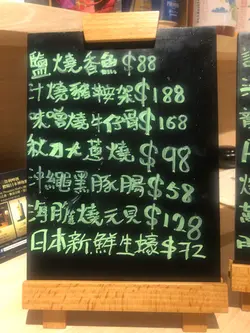 鹽燒香魚 $88
汁燒豬鞍架 $188
味噌燒牛仔骨 $168
大蔥燒 $98
沖繩黑豚腸 $58
海膽燒元貝 $128
日本新鮮生蠔 $72